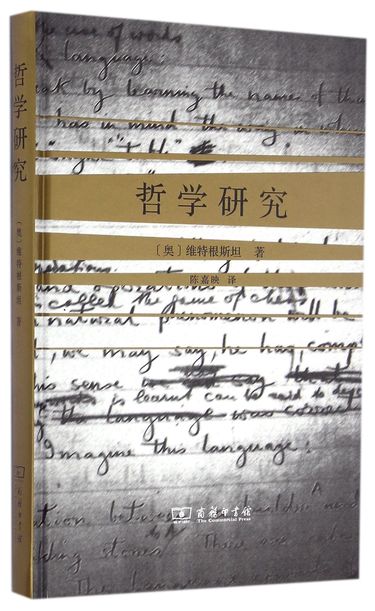 哲学研究
（奥）维特根斯坦 著
商务印书馆
use of words
language:
by learning the names of
has in mind the way in
哲学研究
〔奥〕维特根斯坦 著
陈嘉映 译
and operations of
called the game of chess
natural phenomenon will be
, we may say, he has,
his sense
is learnt can be said to
language was
Imagine this language:
商务印书馆
The Commercial Press
between
stones. There are
The language